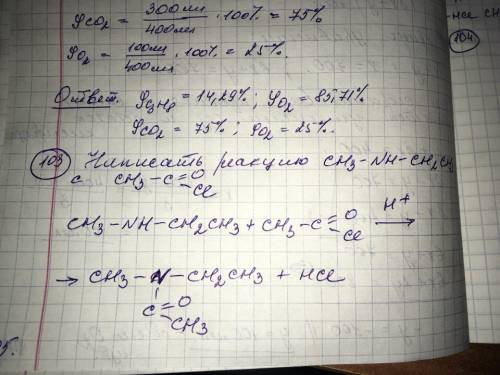 φCO2 = 300мл / 400мл · 100% = 75%
φO2 = 100мл / 400мл · 100% = 25%.
Ответ. φC3H8 = 14,29%; φO2 = 85,71%
φCO2 = 75%; φO2 = 25%.
103 Написать реакцию CH3-NH-CH2CH3
с CH3-C=O Cl
CH3-NH-CH2CH3 + CH3-C=O Cl H+ →
→ CH3-N-CH2CH3 + HCl
C=O
CH3
104
-HCl CH3
5.